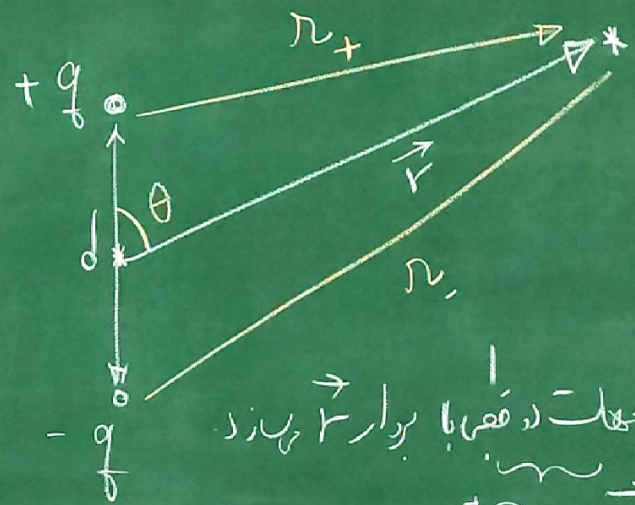 r₊
+q
θ
r⃗
d
r₋
جهت دو قطبی با بردار r⃗ میسازد
-q